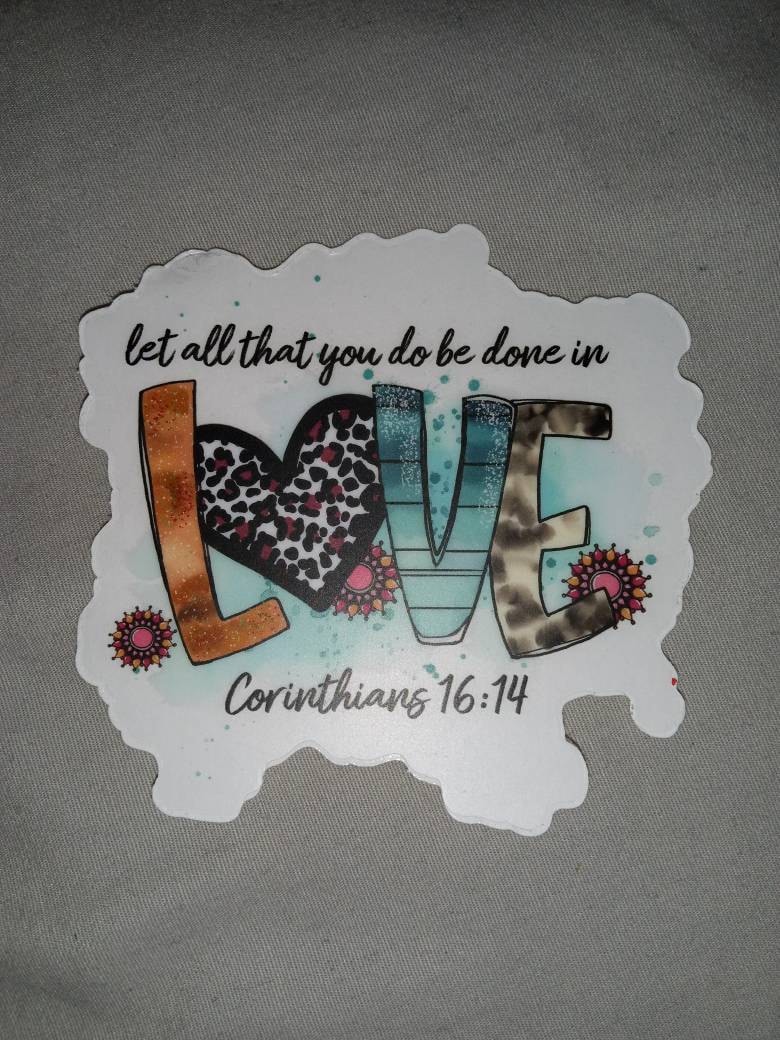 let all that you do be done in
LOVE
Corinthians 16:14